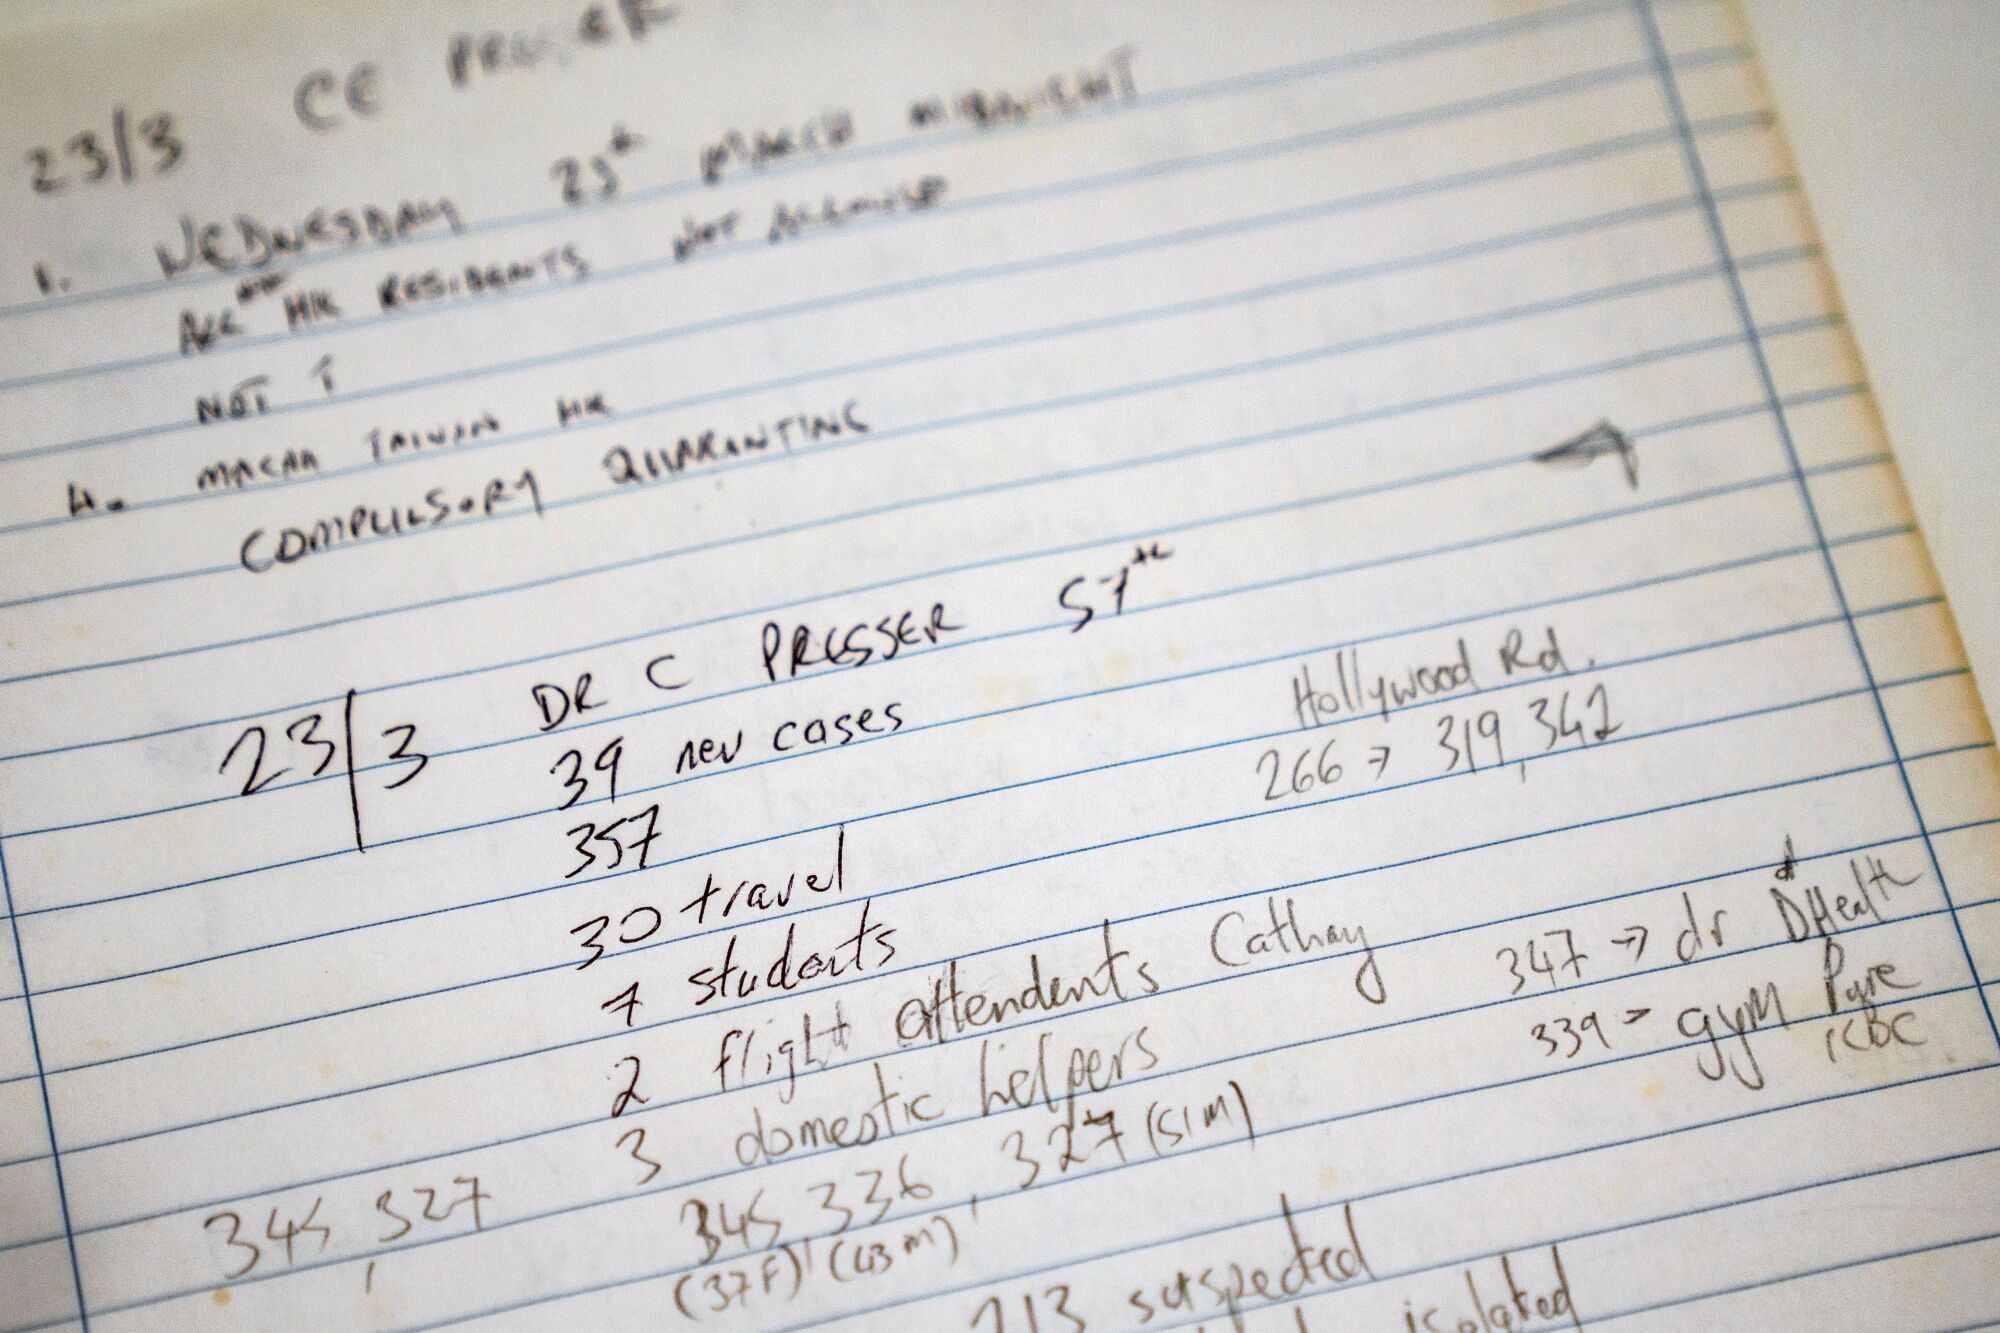 23/3 CE PRESSER
1. WEDNESDAY 25th MARCH MIDNIGHT
HK RESIDENTS NOT ALLOWED
NOT T
4. MACAA TAIWAN HK
COMPULSORY QUARANTINE
23/3 DR C PRESSER 57th
39 new cases
357
Hollywood Rd.
266 → 319, 342
30 travel
7 students
2 flight attendents Cathay
347 → dr DHealth
3 domestic helpers
339 → gym Pure
ICBC
345, 327
345, 336, 327 (51M)
(37F) (43M)
213 suspected
isolated